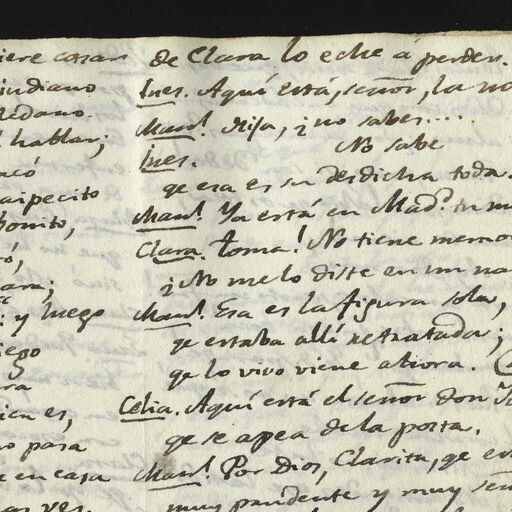 iere casar
indiano
ledano.
hablar;
acó
aipecito
bonito,
ó,
ara;
y luego
iego
ra
ien es,
o para
e en casa
as ves.
de Clara lo eche á perder.
Ines. Aquí está, señor, la no
Man.l Hija, ¿no sabes....
Ines. No sabe
qe esa es su desdicha toda.
Man.l Ya está en Mad.d tu m
Clara. Toma! No tiene memo
¿No me lo diste en un na
Man.l Esa es la figura sola,
qe estaba allí retratada;
qe lo vivo viene ahora.
Celia. Aquí está el señor don
qe se apea de la posta.
Man.l Por Dios, Clarita, qe e
muy prudente y muy señ